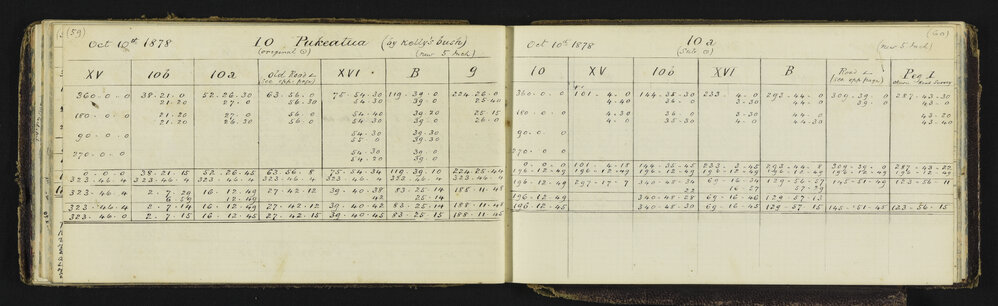 (59)
Oct 10th 1878 10 Pukeatua (by Kelly's bush)
(original ⊙) (new 5 Inch)
XV 10b 10a Old Road L XVI B 9
(see opp. page)
360. 0. 0 38. 21. 0 52. 26. 30 63. 56. 0 75. 54. 30 119. 39. 0 224. 26. 0
21. 20 27. 0 56. 30 54. 30 39. 0 25. 40
180. 0. 0 21. 20 27. 0 56. 0 54. 40 39. 20 25. 15
21. 20 26. 30 56. 0 54. 30 39. 0 26. 0
90. 0. 0 54. 30 39. 30
55. 0 39. 30
270. 0. 0 54. 30 39. 0
54. 20 39. 0
0. 0. 0 38. 21. 15 52. 26. 45 63. 56. 8 75. 54. 34 119. 39. 10 224. 25. 44
323. 46. 4 323. 46. 4 323. 46. 4 323. 46. 4 323. 46. 4 323. 46. 4 323. 46. 4
323. 46. 4 2. 7. 20 16. 12. 49 27. 42. 12 39. 40. 38 83. 25. 14 188. 11. 48
6 59 12. 49 42 25. 14
323. 46. 4 2. 7. 14 16. 12. 49 27. 42. 12 39. 40. 42 83. 25. 14 188. 11. 48
323. 46. 0 2. 7. 15 16. 12. 45 27. 42. 15 39. 40. 45 83. 25. 15 188. 11. 45
(60)
Oct 10th 1878 10a (new 5 Inch)
10 XV 10b XVI B Road L Peg 1
(see opp. page)
360. 0. 0 101. 4. 0 144. 35. 30 233. 4. 0 293. 44. 0 309. 39. 0 287. 43. 30
4. 40 36. 0 3. 30 44. 0 43. 0
180. 0. 0 4. 30 36. 0 3. 0 44. 30 43. 20
4. 0 35. 30 4. 0 44. 0 43. 40
90. 0. 0
270. 0. 0
0. 0. 0 101. 4. 18 144. 35. 45 233. 2. 45 293. 44. 8 309. 39. 0 287. 43. 20
196. 12. 49 196. 12. 49 196. 12. 49 196. 12. 49 196. 12. 49 196. 12. 49 196. 12. 49
196. 12. 49 297. 17. 7 340. 48. 34 69. 16. 129. 56. 57 145. 51. 49 123. 56. 11
22 16. 27 57. 29
196. 12. 49 340. 48. 28 69. 16. 40 129. 57. 13
196. 12. 45 340. 48. 30 69. 16. 45 129. 57. 15 145. 51. 45 123. 56. 15